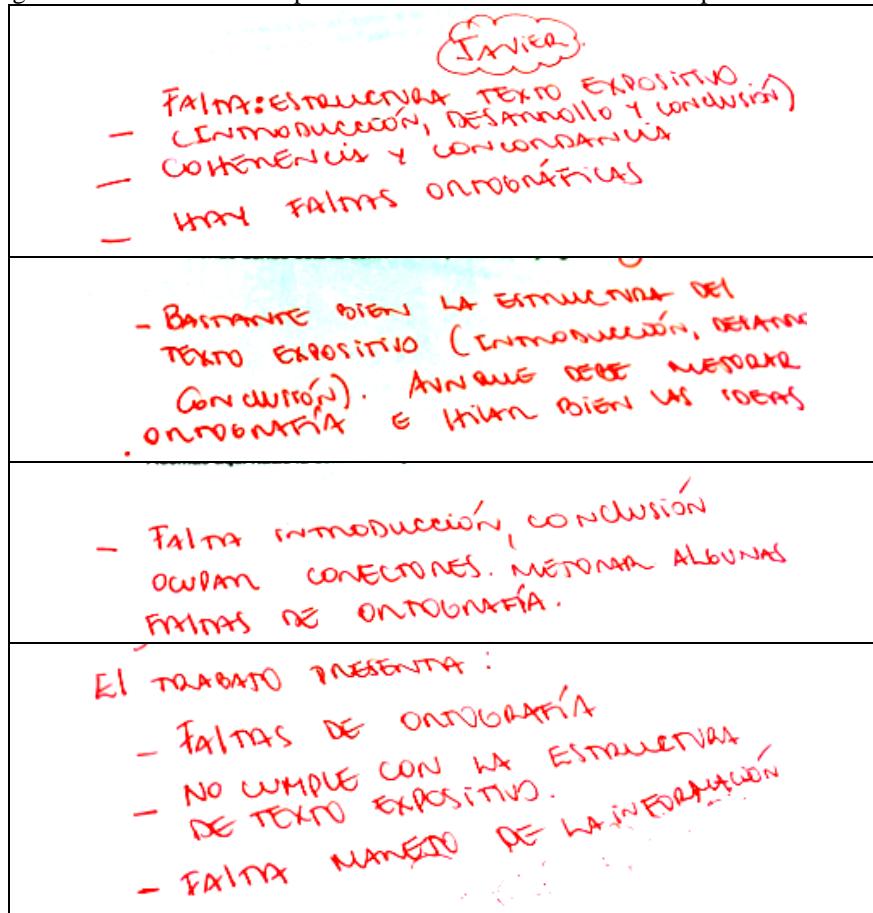 JAVIER.
FALTA: ESTRUCTURA TEXTO EXPOSITIVO.
– (INTRODUCCIÓN, DESARROLLO Y CONCLUSIÓN)
– COHERENCIA Y CONCORDANCIA
– HAY FALTAS ORTOGRÁFICAS
– BASTANTE BIEN LA ESTRUCTURA DEL
TEXTO EXPOSITIVO (INTRODUCCIÓN, DESARRO
CONCLUSIÓN). AUNQUE DEBE MEJORAR
ORTOGRAFÍA E HILAR BIEN LAS IDEAS
– FALTA INTRODUCCIÓN, CONCLUSIÓN
OCUPAR CONECTORES. MEJORAR ALGUNAS
FALTAS DE ORTOGRAFÍA.
El TRABAJO PRESENTA:
– FALTAS DE ORTOGRAFÍA
– NO CUMPLE CON LA ESTRUCTURA
DE TEXTO EXPOSITIVO.
– FALTA MANEJO DE LA INFORMACIÓN